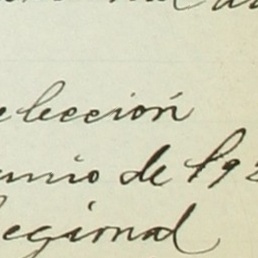 elección
unio de 192
egional